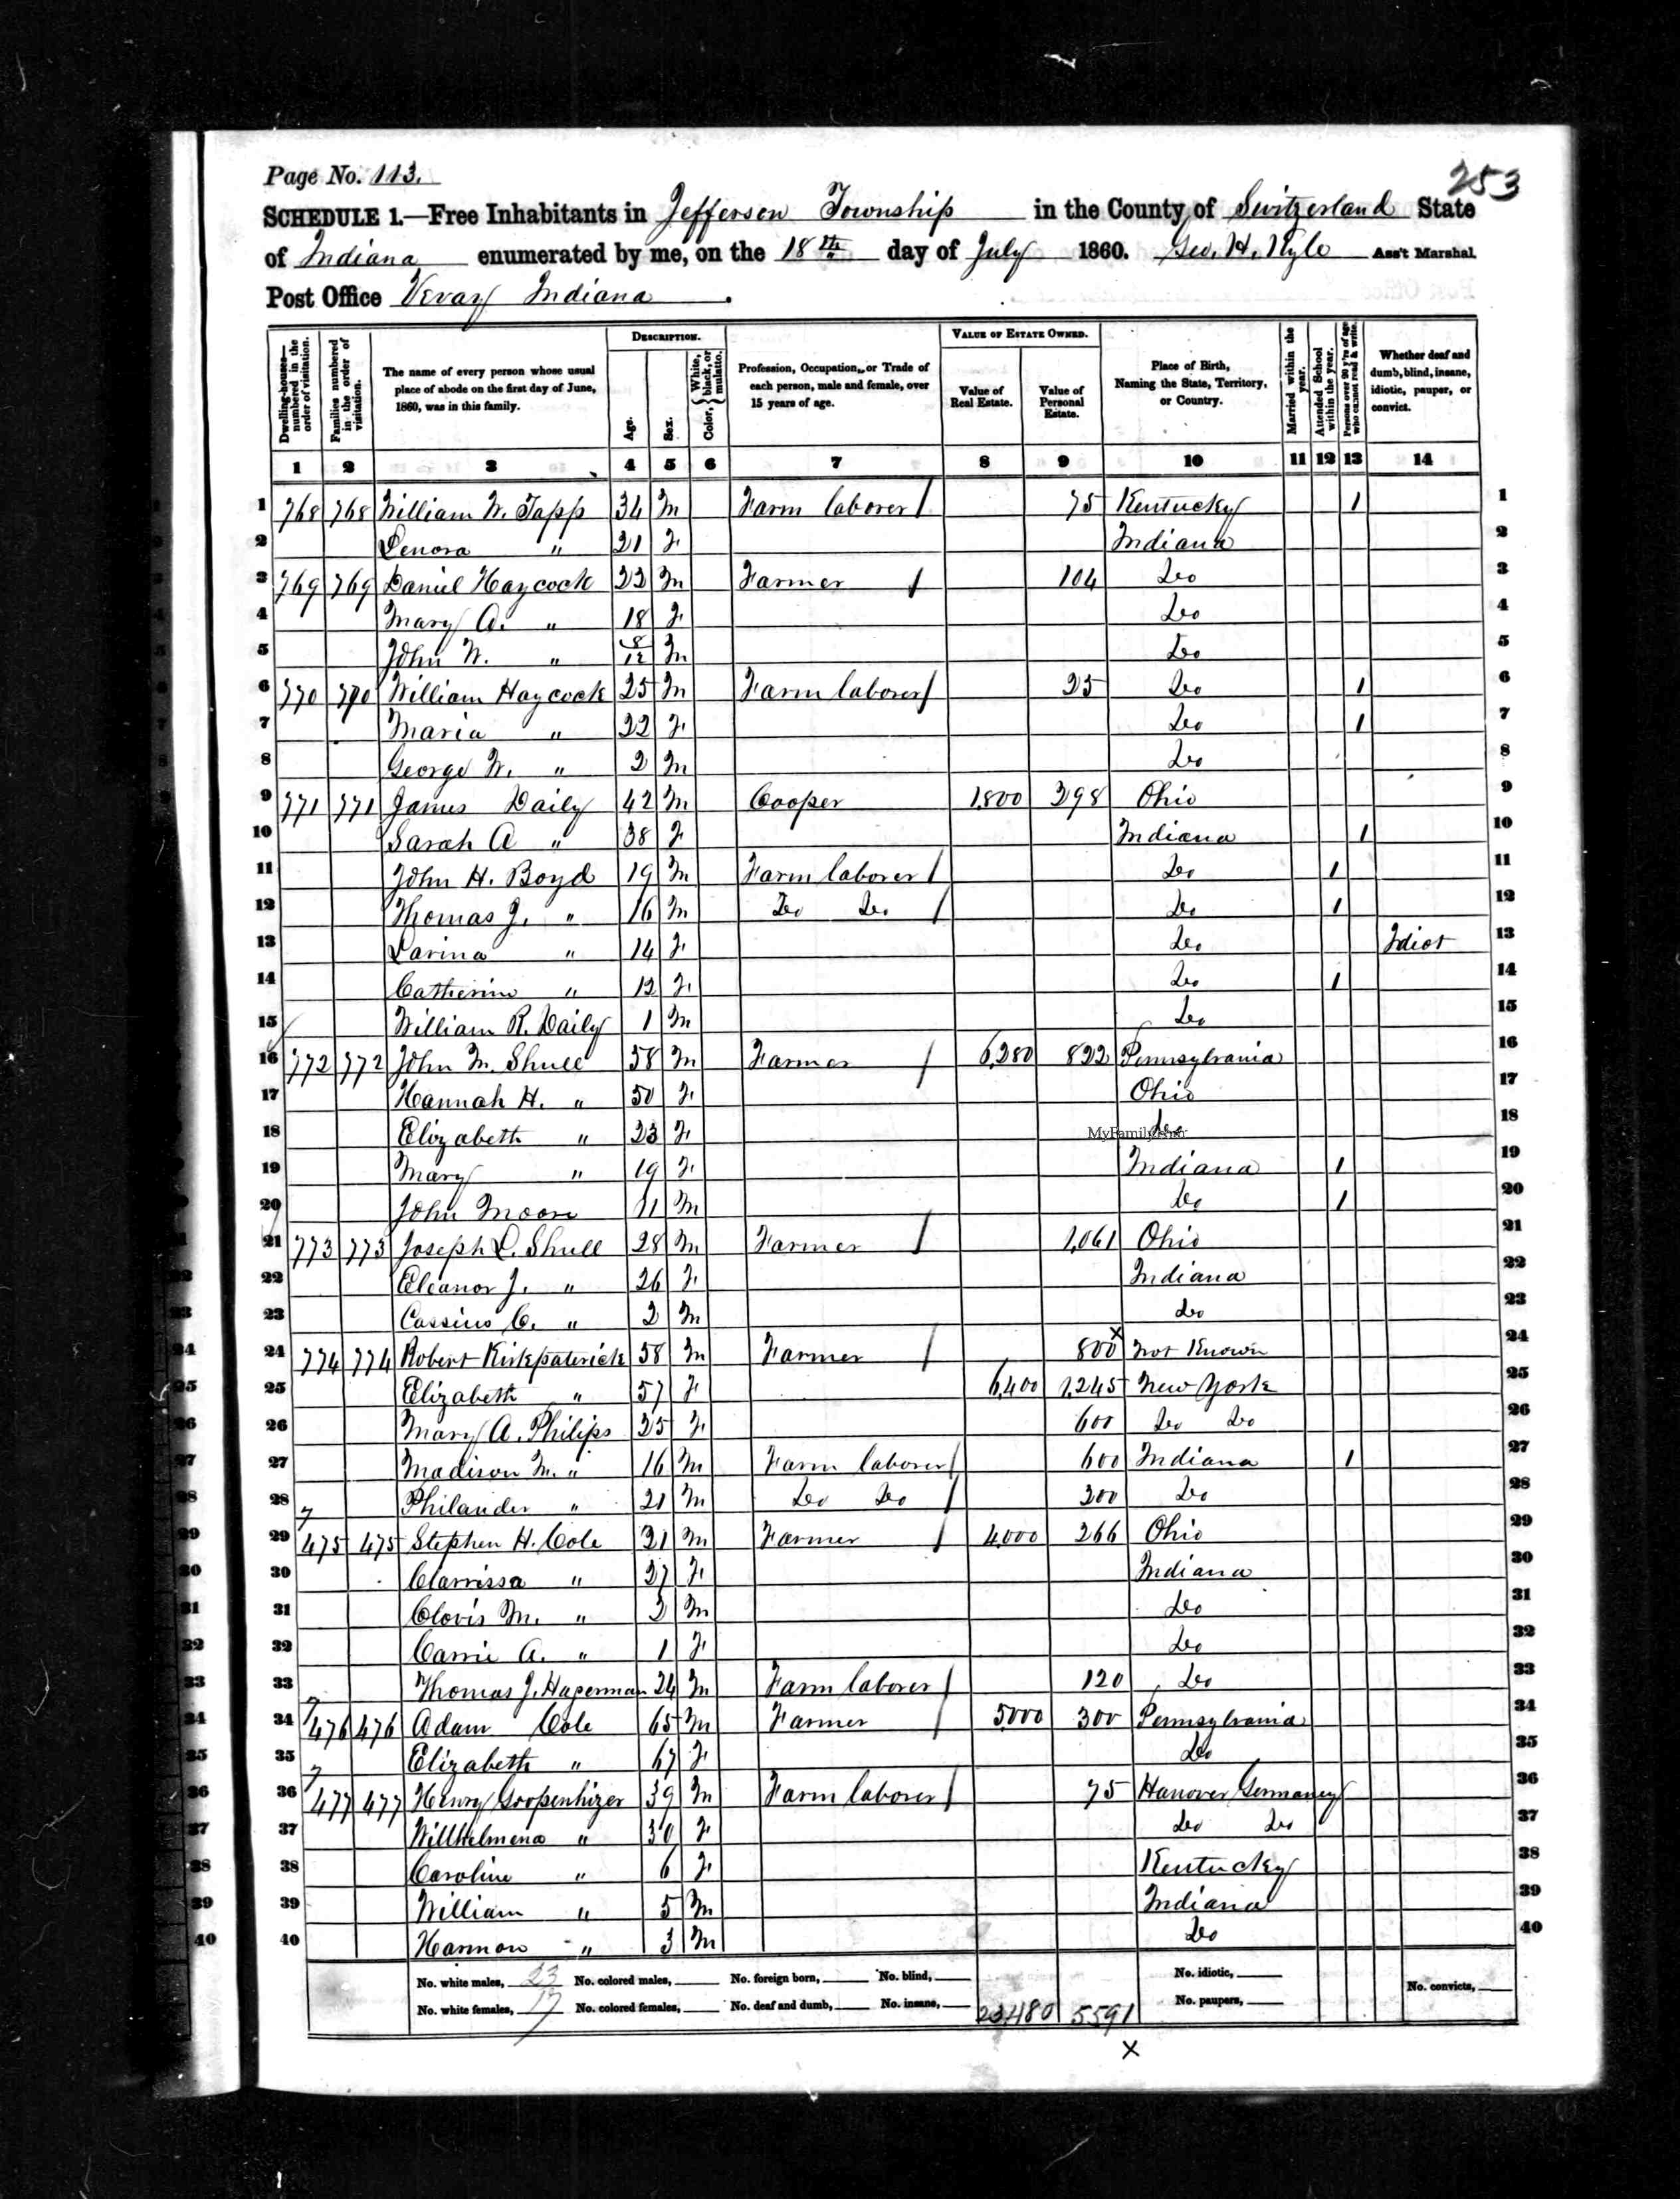 253
Page No. 113.
SCHEDULE 1.—Free Inhabitants in Jefferson Township in the County of Switzerland State
of Indiana enumerated by me, on the 18th day of July 1860. Geo. H. Kyle Ass't Marshal.
Post Office Vevay Indiana.
Dwelling-houses—numbered in the order of visitation. Families numbered in the order of visitation. The name of every person whose usual place of abode on the first day of June, 1860, was in this family. DESCRIPTION. Age. Sex. Color, White, black, or mulatto. Profession, Occupation, or Trade of each person, male and female, over 15 years of age. VALUE OF ESTATE OWNED. Value of Real Estate. Value of Personal Estate. Place of Birth, Naming the State, Territory, or Country. Married within the year. Attended School within the year. Persons over 20 y'rs of age who cannot read & write. Whether deaf and dumb, blind, insane, idiotic, pauper, or convict.
1 2 3 4 5 6 7 8 9 10 11 12 13 14
1 768 768 William W. Tapp 34 M Farm laborer / 75 Kentucky 1 1
2 Lenora " 21 F Indiana 2
3 769 769 Daniel Haycock 22 M Farmer / 104 Do 3
4 Mary A. " 18 F Do 4
5 John W. " 8/12 M Do 5
6 770 770 William Haycock 25 M Farm laborer / 25 Do 1 6
7 Maria " 22 F Do 1 7
8 George W. " 2 M Do 8
9 771 771 James Daily 42 M Cooper 1,800 398 Ohio 9
10 Sarah A " 38 F Indiana 1 10
11 John H. Boyd 19 M Farm laborer / Do 1 11
12 Thomas J. " 16 M Do Do / Do 1 12
13 Larina " 14 F Do Idiot 13
14 Catherine " 12 F Do 1 14
15 William R. Daily 1 M Do 15
16 772 772 John M. Shull 58 M Farmer / 6,280 822 Pennsylvania 16
17 Hannah H. " 50 F Ohio 17
18 Elizabeth " 23 F Do 18
19 Mary " 19 F Indiana 1 19
20 John Moore 11 M Do 1 20
21 773 773 Joseph L. Shull 28 M Farmer / 1,061 Ohio 21
22 Eleanor J. " 26 F Indiana 22
23 Cassius C. " 2 M Do 23
24 774 774 Robert Kirkpaterick 58 M Farmer / 800 x Not Known 24
25 Elizabeth " 57 F 6,400 1,245 New York 25
26 Mary A. Philips 25 F 600 Do Do 26
27 Madison M. " 16 M Farm laborer / 600 Indiana 1 27
28 Philander " 21 M Do Do / 200 Do 28
29 7 475 475 Stephen H. Cole 31 M Farmer / 4,000 266 Ohio 29
30 Clarrissa " 27 F Indiana 30
31 Clovis M. " 2 M Do 31
32 Carrie A. " 1 F Do 32
33 Thomas J. Hagerman 24 M Farm laborer / 120 Do 33
34 7 476 476 Adam Cole 65 M Farmer / 5,000 300 Pennsylvania 34
35 Elizabeth " 67 F Do 35
36 7 477 477 Henry Goopenhizer 39 M Farm laborer / 75 Hanover Germaney 36
37 Willhelmena " 30 F Do Do 37
38 Caroline " 6 F Kentucky 38
39 William " 5 M Indiana 39
40 Harmon " 3 M Do 40
No. white males, 23 No. colored males, No. foreign born, No. blind, No. idiotic, No. convicts,
No. white females, 17 No. colored females, No. deaf and dumb, No. insane, 23,480 5591 No. paupers,
x